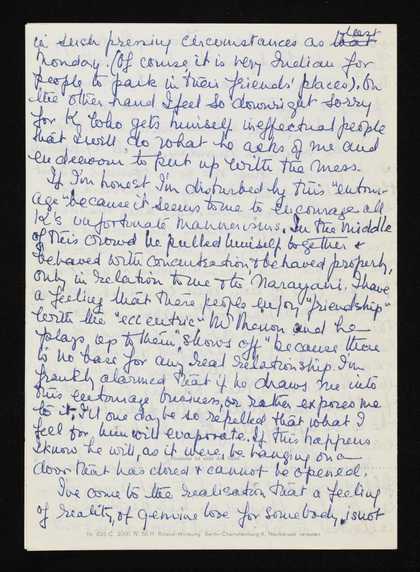 in such pressing circumstances as that last
Monday. (Of course it is very Indian for
people to park in their friends' places). On
the other hand I feel so downright sorry
for K who gets himself ineffectual people
that I will do what he asks of me and
endeavour to put up with the mess.
If I'm honest I'm disturbed by this "entour-
age" because it seems to me to encourage all
K's unfortunate mannerisms. In the middle
of this crowd he pulled himself together &
behaved with concentration, & behaved properly,
only in relation to me & the Narayani. I have
a feeling that these people enjoy "friendship"
with the "eccentric" Mr Menon and he
plays up to them, "shows off" because there
is no base for any real relationship. I'm
frankly alarmed that if he draws me into
this entourage business, or rather exposes me
to it, I'll one day be so repelled that what I
feel for him will evaporate. If this happens
I know he will, as it were, be hanging on a
door that has closed & cannot be opened.
I've come to the realisation that a feeling
of reality, of genuine love for somebody, is not